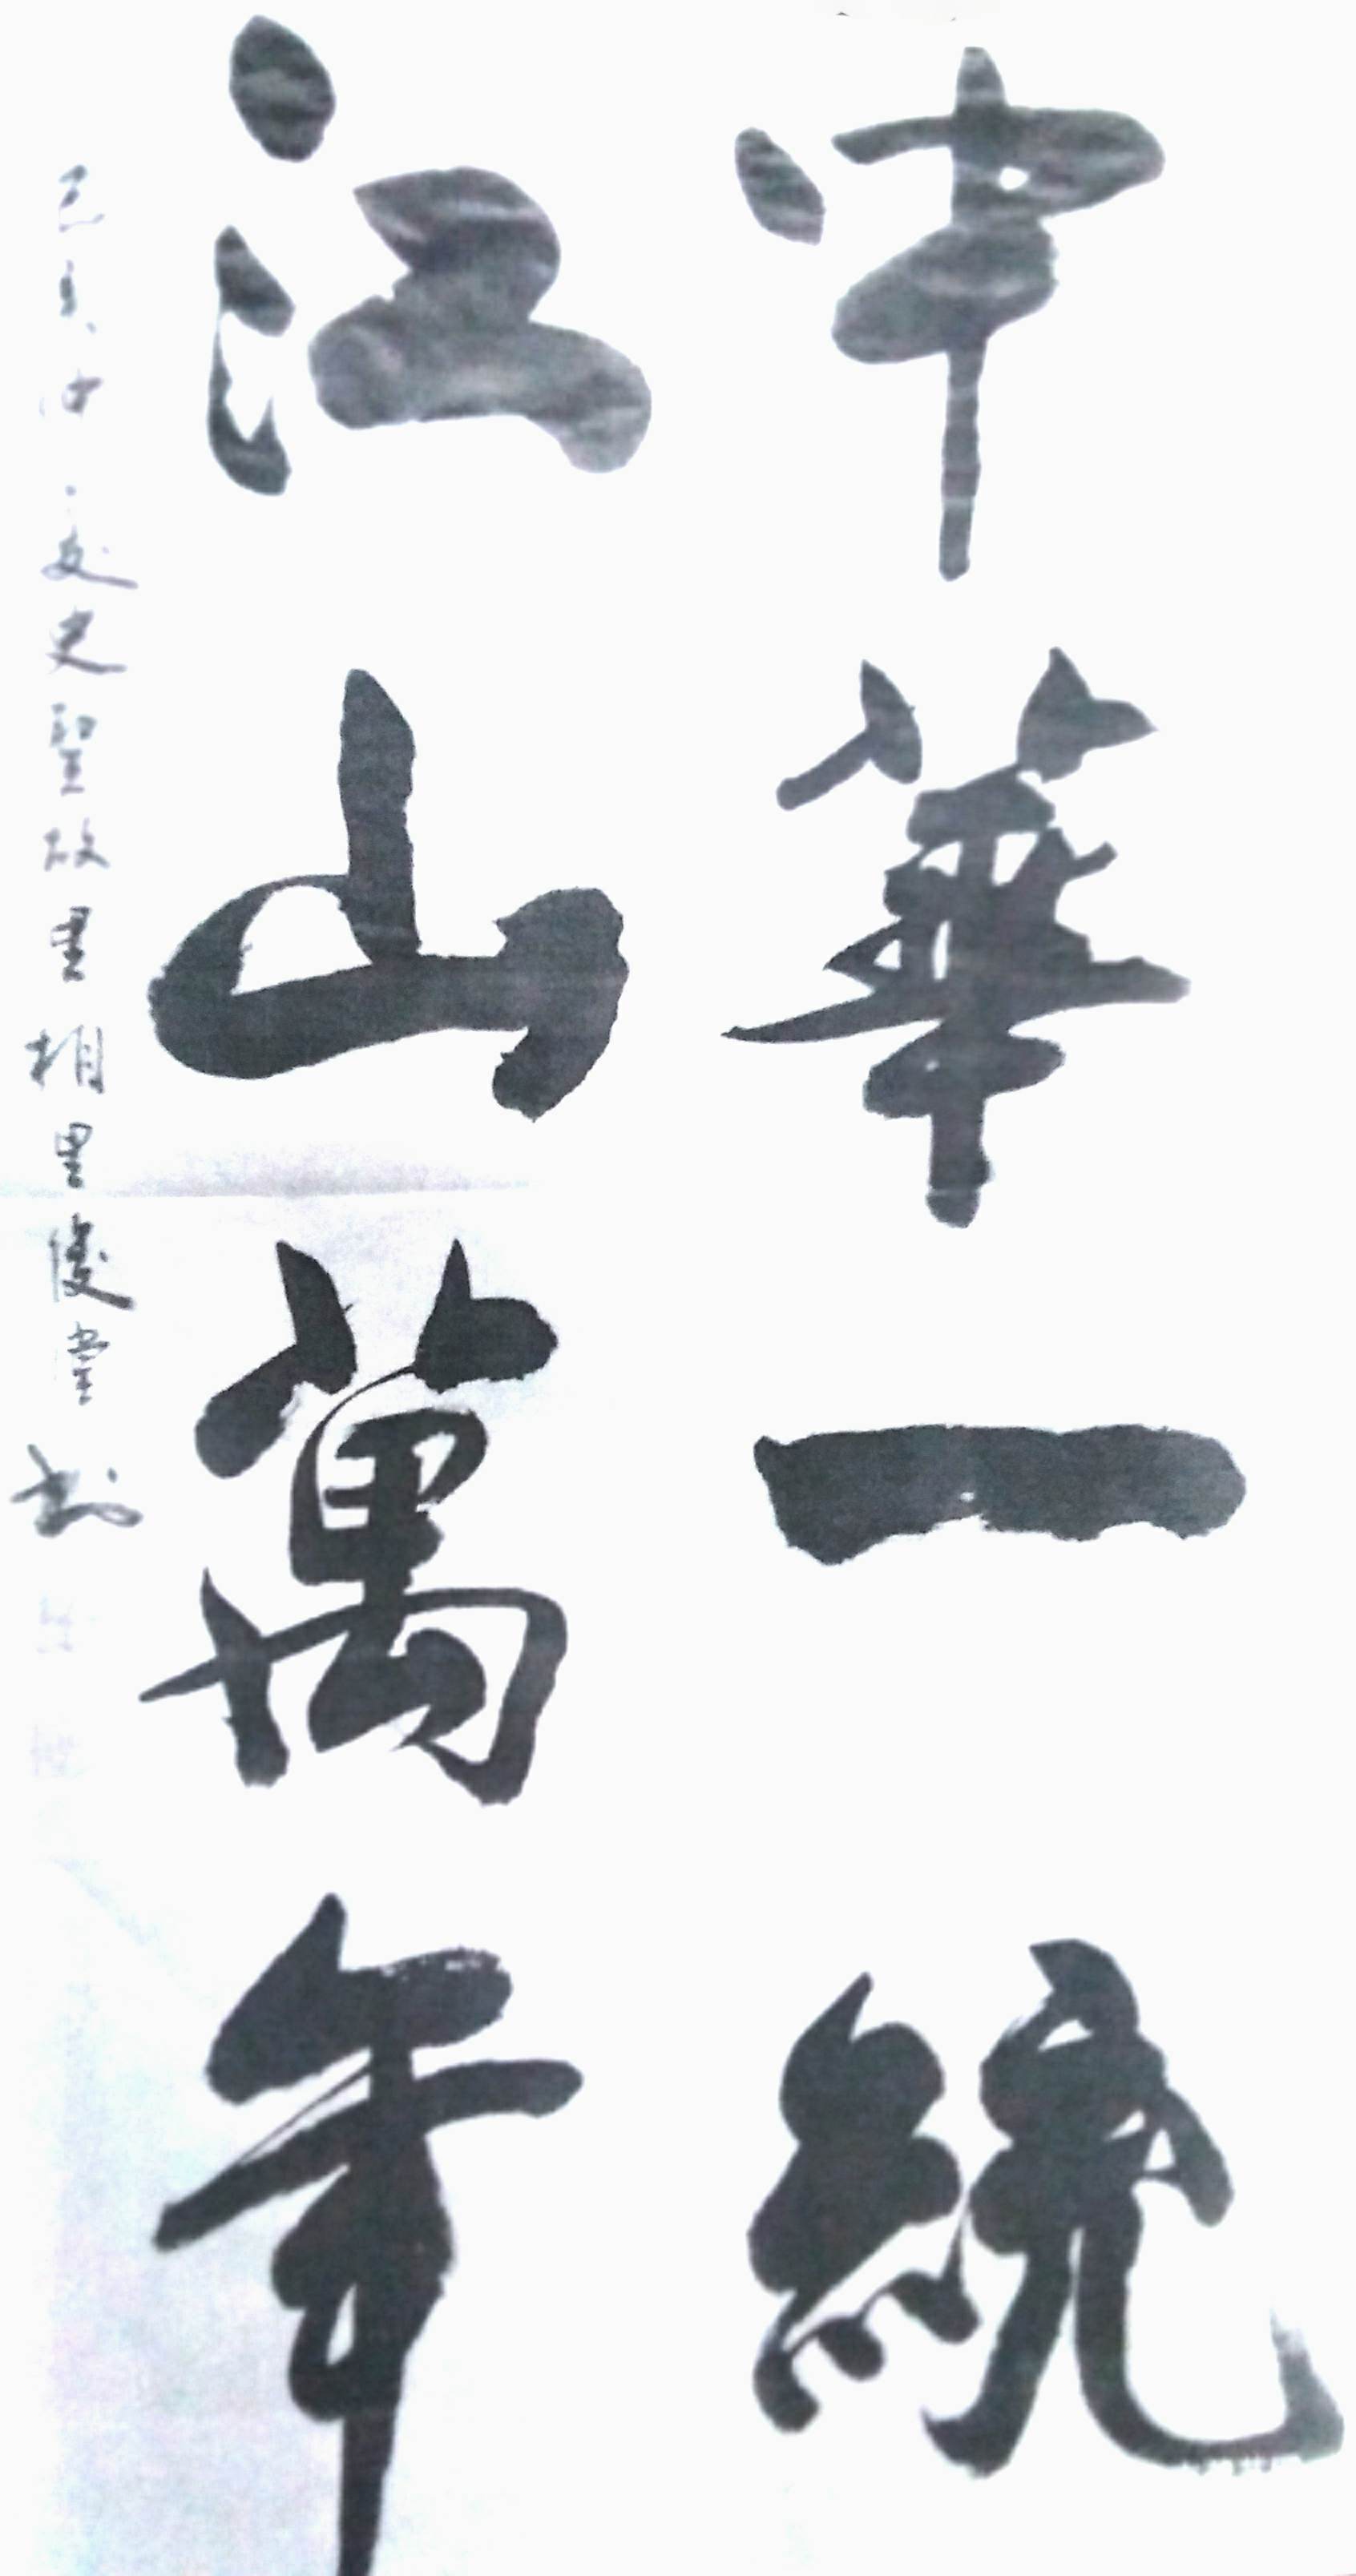 中華一統
江山萬年
己亥仲夏史聖故里相里俊堂书